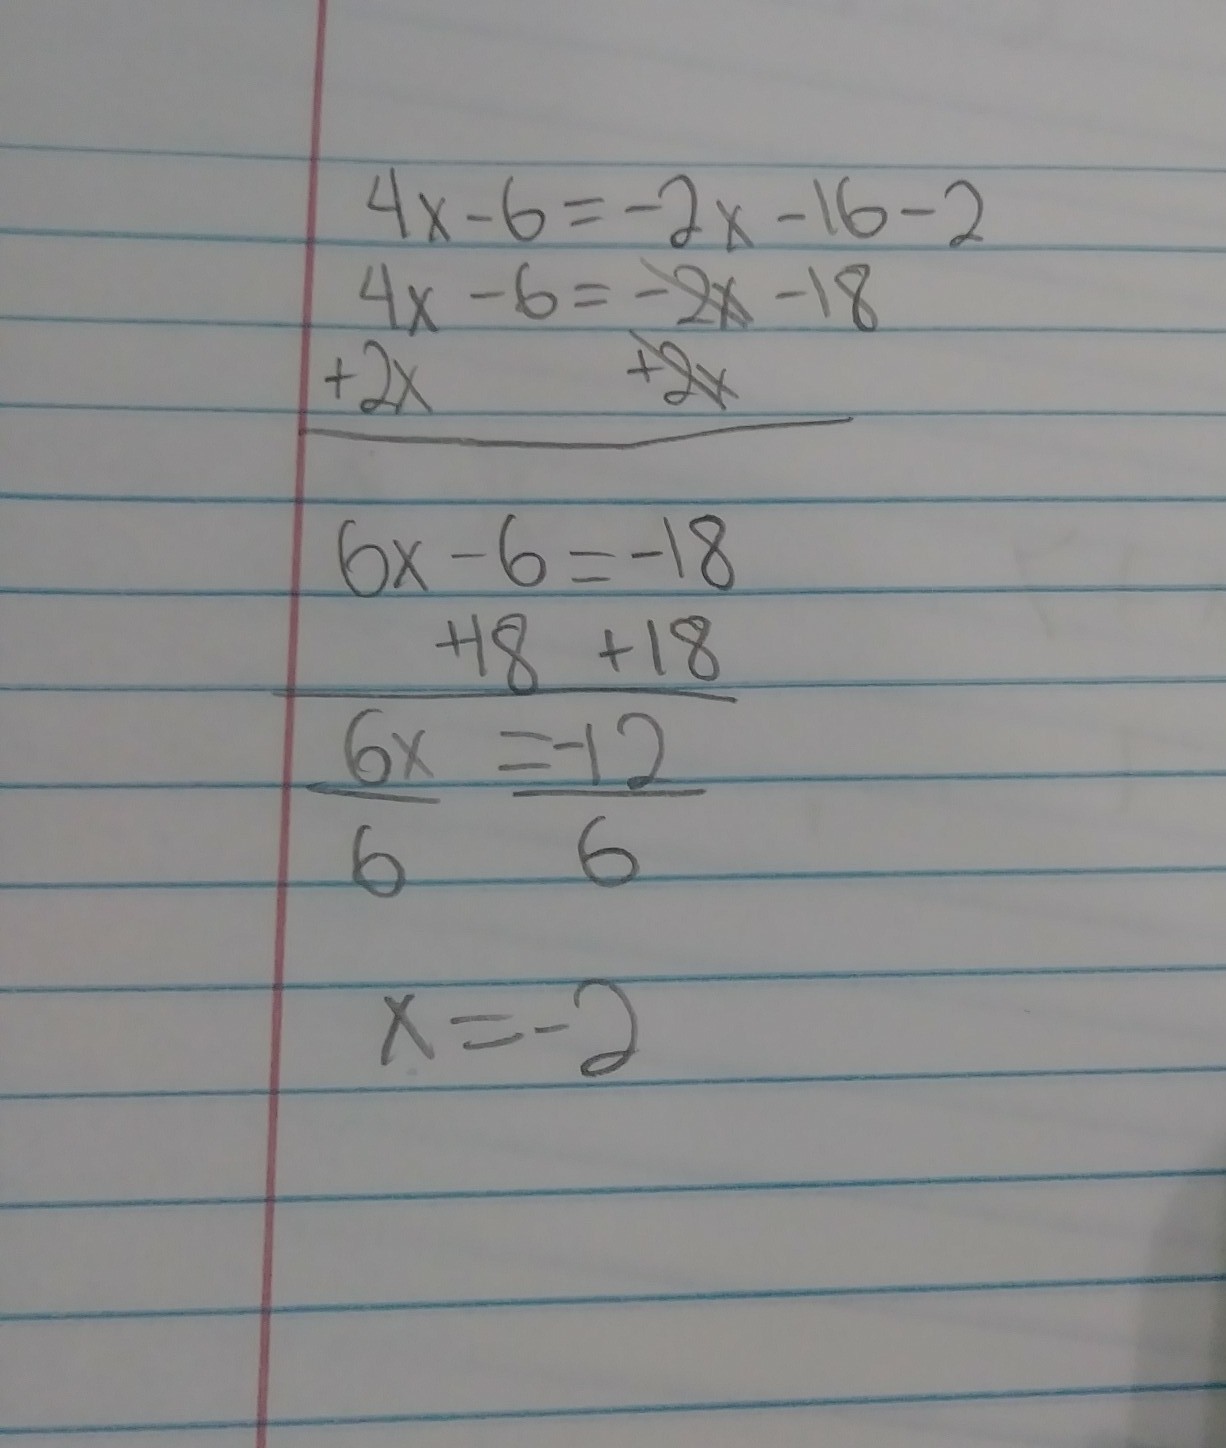 4x-6=-2x-16-2
4x-6=-2x-18
+2x +2x
6x-6=-18
+18 +18
6x =-12
6 6
x=-2